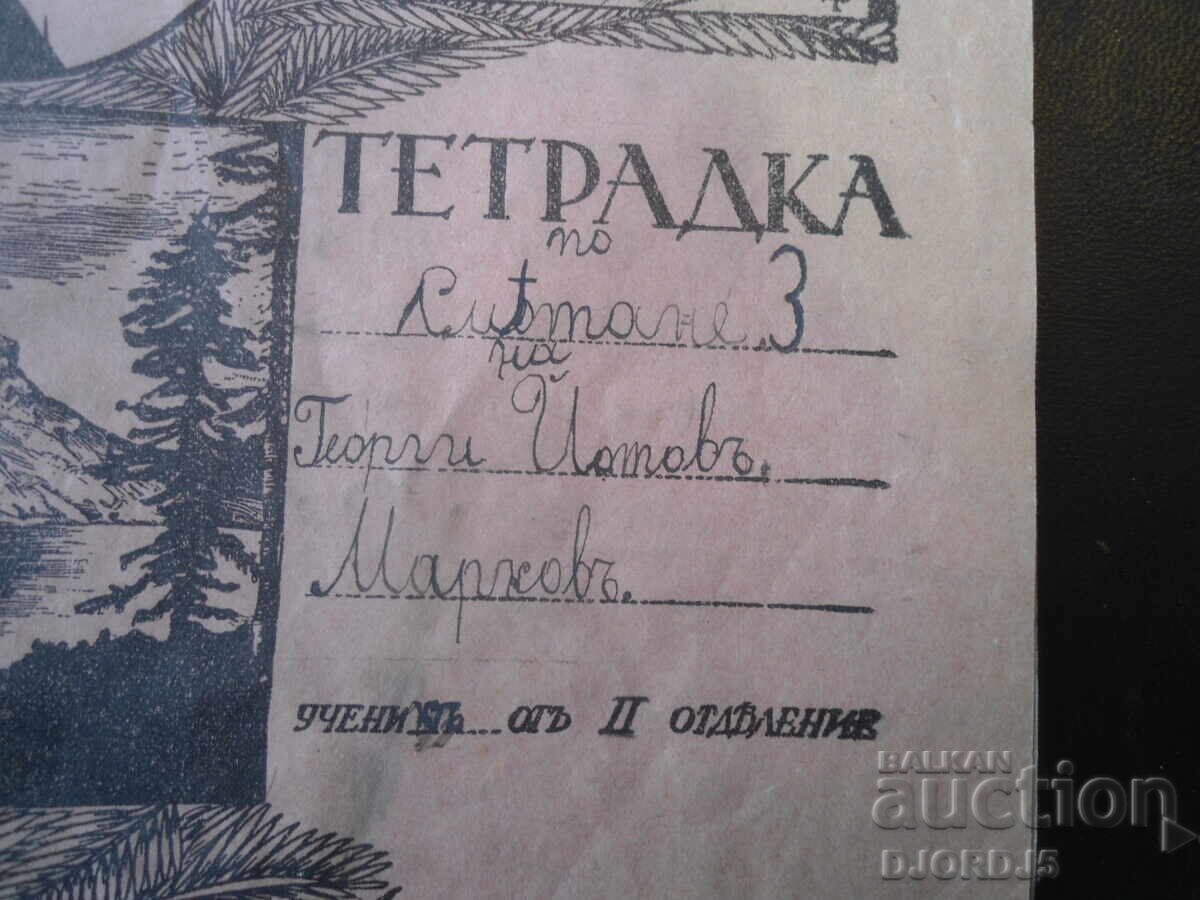 ТЕТРАДКА
по
Смѣтане 3
на
Георги Йотовъ.
Марковъ.
УЧЕНИКЪ... ОТЪ II ОТДѢЛЕНИЕ
BALKAN
auction
DJORDJ5